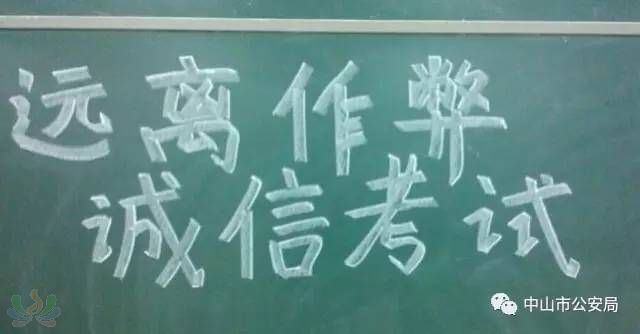 远离作弊
诚信考试
中山市公安局